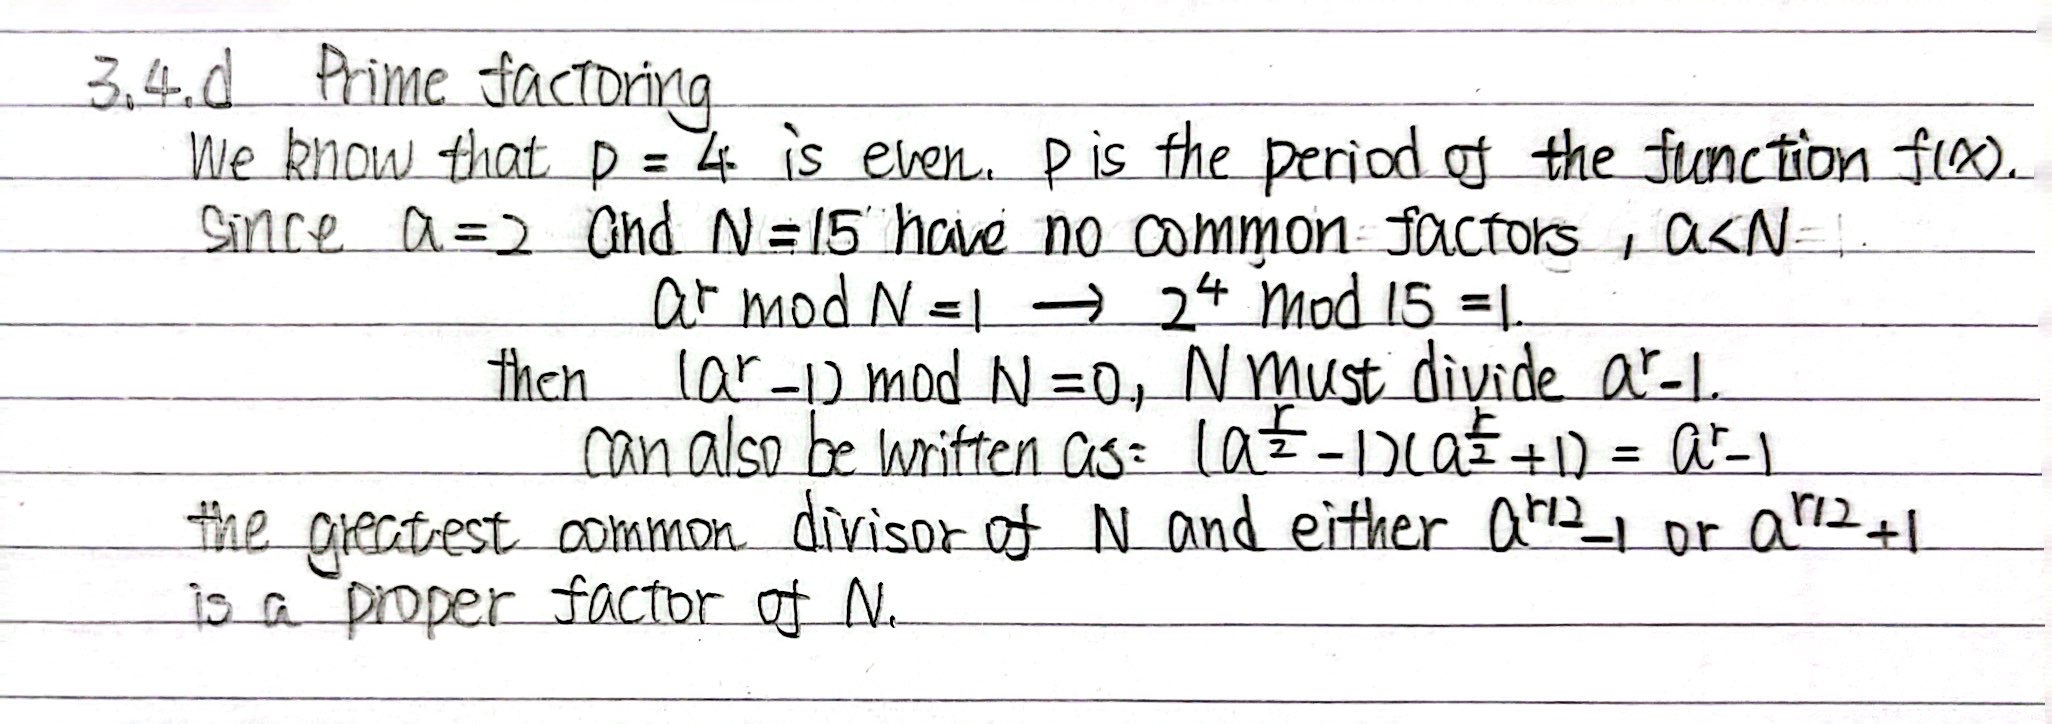 3.4.d Prime factoring
We know that p = 4 is even. p is the period of the function f(x).
Since a = 2 and N = 15 have no common factors, a<N
a^r mod N = 1 → 2^4 mod 15 = 1.
then (a^r - 1) mod N = 0, N must divide a^r - 1.
can also be written as: (a^{r/2} - 1)(a^{r/2} + 1) = a^r - 1
the greatest common divisor of N and either a^{r/2} - 1 or a^{r/2} + 1
is a proper factor of N.